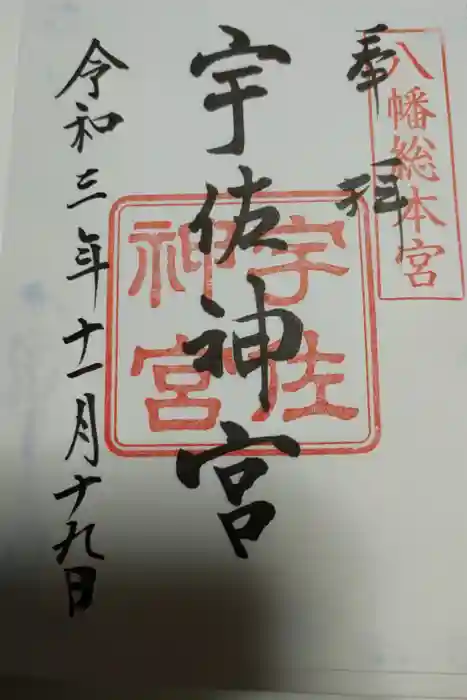 八幡総本宮
奉拝
宇佐神宮
宇佐
神宮
令和三年十一月十九日